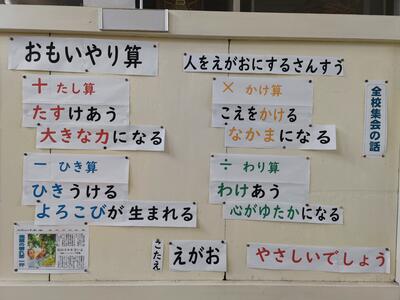 おもいやり算
人をえがおにするさんすう
＋ たし算
たすけあう
大きな力になる
× かけ算
こえをかける
なかまになる
全校集会の話
− ひき算
ひきうける
よろこびが 生まれる
÷ わり算
わけあう
心がゆたかになる
こたえ
えがお
やさしいでしょう